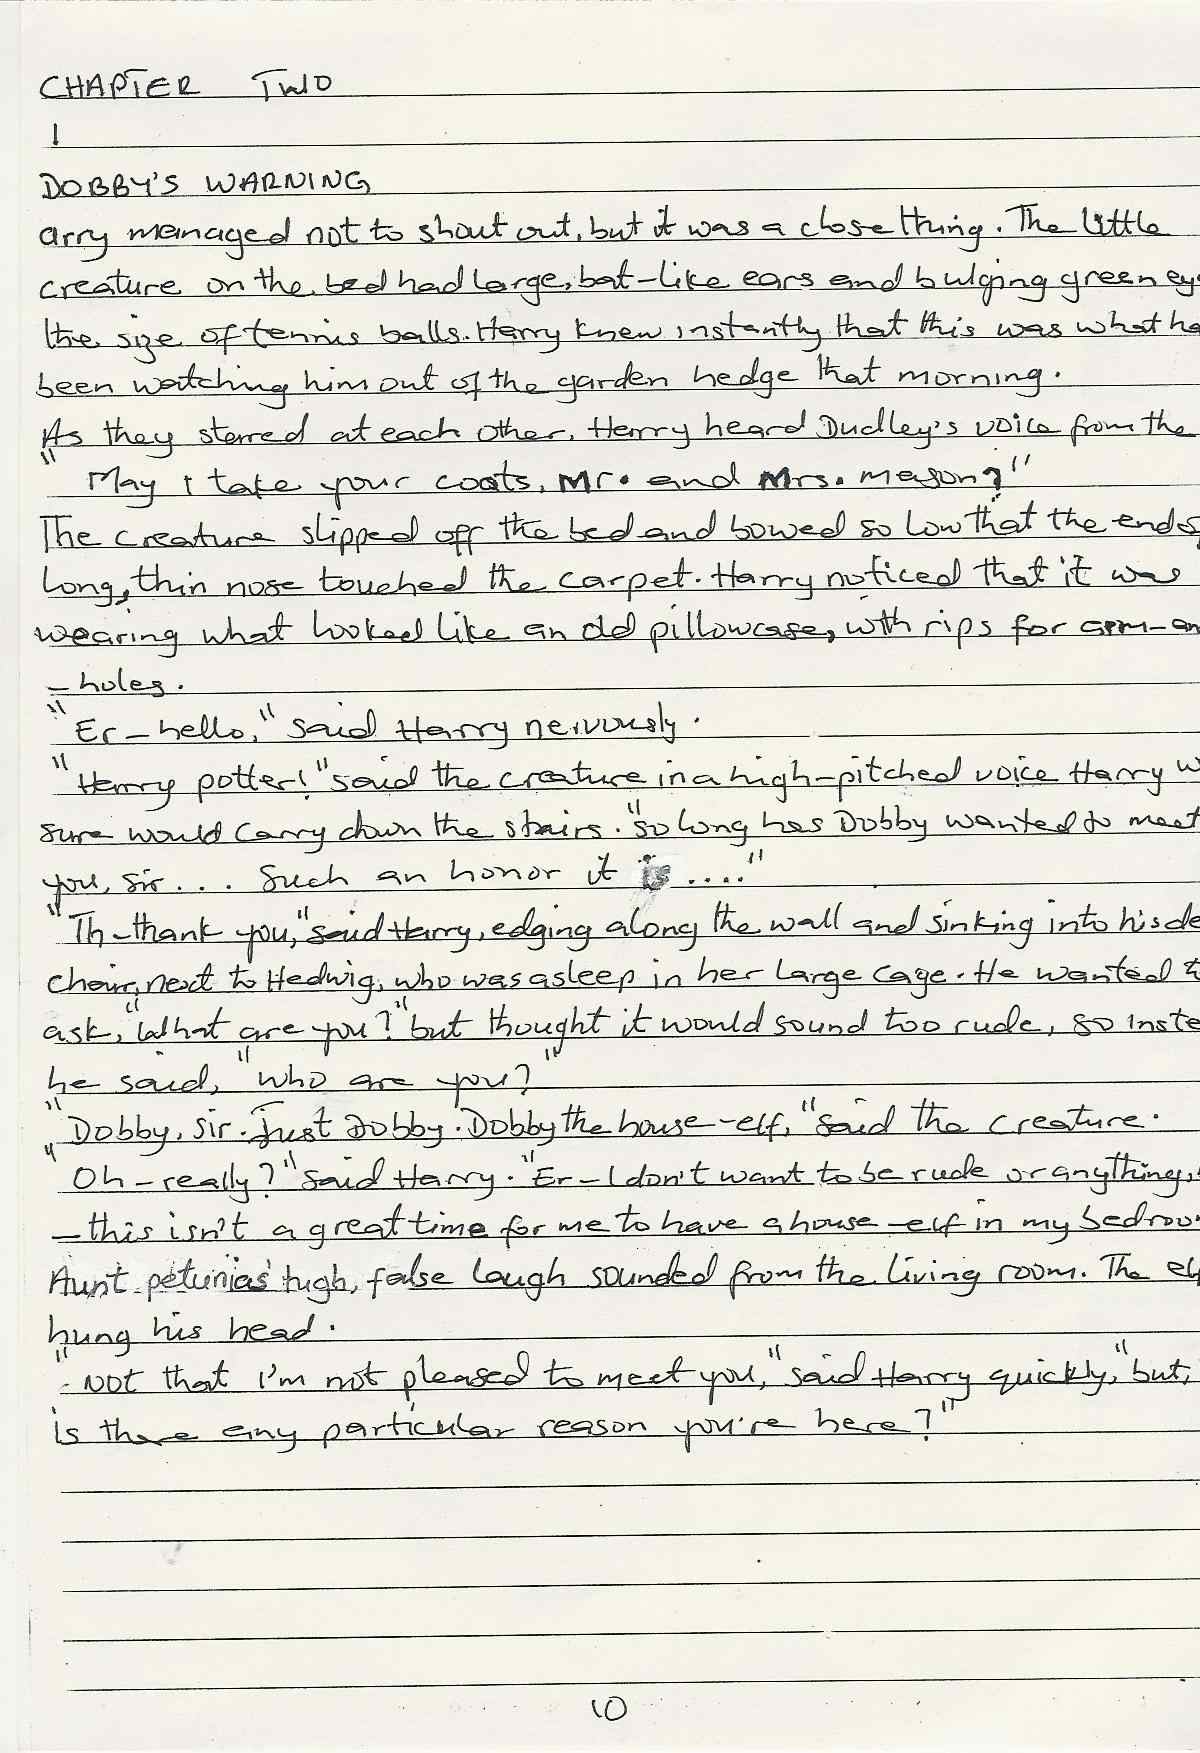 CHAPTER TWO
I
DOBBY'S WARNING
arry managed not to shout out, but it was a close thing. The little
creature on the bed had large, bat-like ears and bulging green ey
the size of tennis balls. Harry knew instantly that this was what ha
been watching him out of the garden hedge that morning.
As they starred at each other, Harry heard Dudley's voice from the
"May I take your coats, Mr. and Mrs. mason?"
The creature slipped off the bed and bowed so low that the end of
long, thin nose touched the carpet. Harry noticed that it was
wearing what looked like an old pillowcase, with rips for arm-an
-holes.
"Er-hello," said Harry nervously.
"Harry potter!" said the creature in a high-pitched voice Harry w
sure would carry down the stairs. "so long has Dobby wanted to meet
you, sir... Such an honor it is ...."
"Th-thank you," said Harry, edging along the wall and sinking into his de
chair, next to Hedwig, who was asleep in her large cage. He wanted t
ask, "What are you?" but thought it would sound too rude, so inste
he said, "who are you?"
"Dobby, sir. Just Dobby. Dobby the house-elf," said the creature.
"Oh-really?" said Harry. "Er-I don't want to be rude or anything,
-this isn't a great time for me to have a house-elf in my bedroo
Aunt petunias' high, false laugh sounded from the living room. The el
hung his head.
"Not that I'm not pleased to meet you," said Harry quickly, "but,
is there any particular reason you're here?"
10